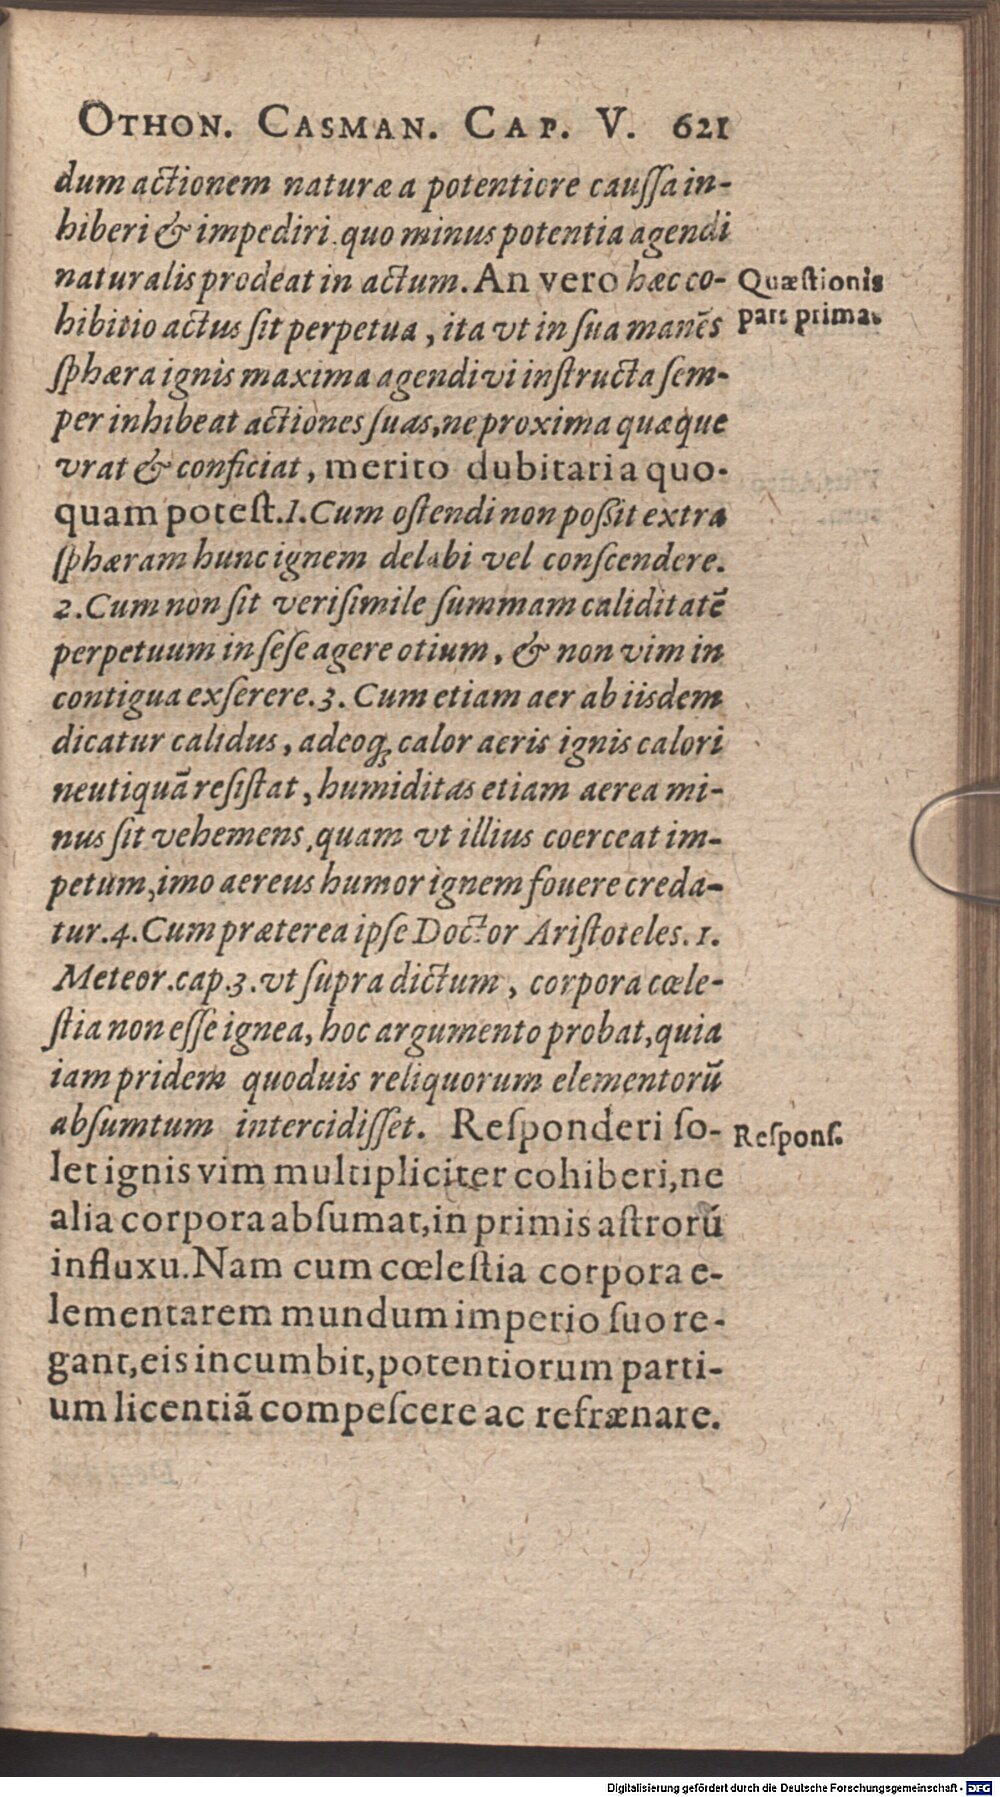 OTHON. CASMAN. CAP. V. 621
dum actionem naturæ a potentiore cauſſa in-
hiberi & impediri quo minus potentia agendi
naturalis prodeat in actum. An vero hæc co-
Quæſtionis
hibitio actus ſit perpetua, ita vt in ſua manẽs
pars prima.
ſphæra ignis maxima agendi vi inſtructa ſem-
per inhibeat actiones ſuas, ne proxima quæque
vrat & conficiat, merito dubitari a quo-
quam poteſt. 1. Cum oſtendi non poſſit extra
ſphæram hunc ignem delabi vel conſcendere.
2. Cum non ſit veriſimile ſummam caliditatẽ
perpetuum in ſeſe agere otium, & non vim in
contigua exſerere. 3. Cum etiam aer ab iisdem
dicatur calidus, adeoq; calor aeris ignis calori
neutiquã reſiſtat, humiditas etiam aerea mi-
nus ſit vehemens, quam vt illius coerceat im-
petum, imo aereus humor ignem fouere creda-
tur. 4. Cum præterea ipſe Doctor Ariſtoteles. 1.
Meteor. cap. 3. vt ſupra dictum, corpora cœle-
ſtia non eſſe ignea, hoc argumento probat, quia
iam pridem quoduis reliquorum elementorũ
abſumtum intercidiſſet. Reſponderi ſo-
Reſponſ.
let ignis vim multipliciter cohiberi, ne
alia corpora abſumat, in primis aſtrorũ
influxu. Nam cum cœleſtia corpora e-
lementarem mundum imperio ſuo re-
gant, eis incumbit, potentiorum parti-
um licentiã compeſcere ac refrænare.
Digitalisierung gefördert durch die Deutsche Forschungsgemeinschaft - DFG